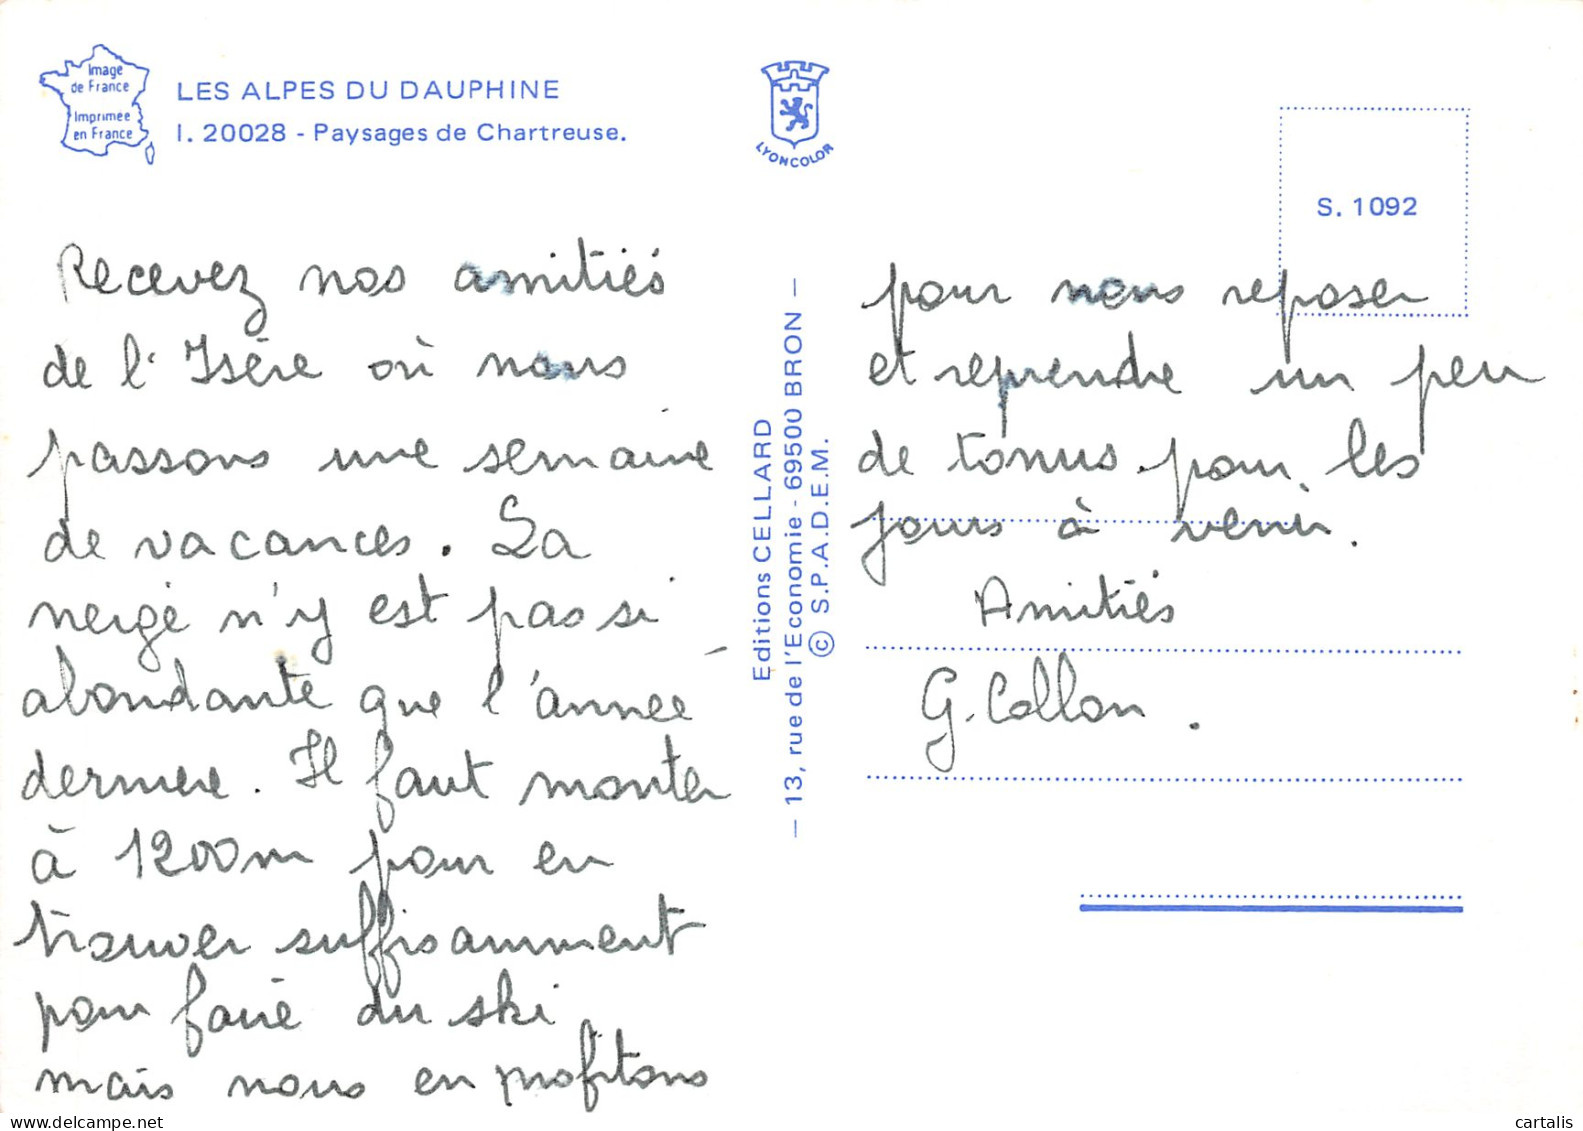 Image
de France
Imprimée
en France
LES ALPES DU DAUPHINE
I. 20028 - Paysages de Chartreuse.
LYONCOLOR
S. 1092
Recevez nos amitiés
de l'Isère où nous
passons une semaine
de vacances. La
neige n'y est pas si
abondante que l'année
dernière. Il faut monter
à 1200m pour en
trouver suffisamment
pour faire du ski
mais nous en profitons
Editions CELLARD
— 13, rue de l'Economie - 69500 BRON —
© S.P.A.D.E.M.
pour nous reposer
et reprendre un peu
de tonus pour les
jours à venir.
Amitiés
G. Collon.
cartalis